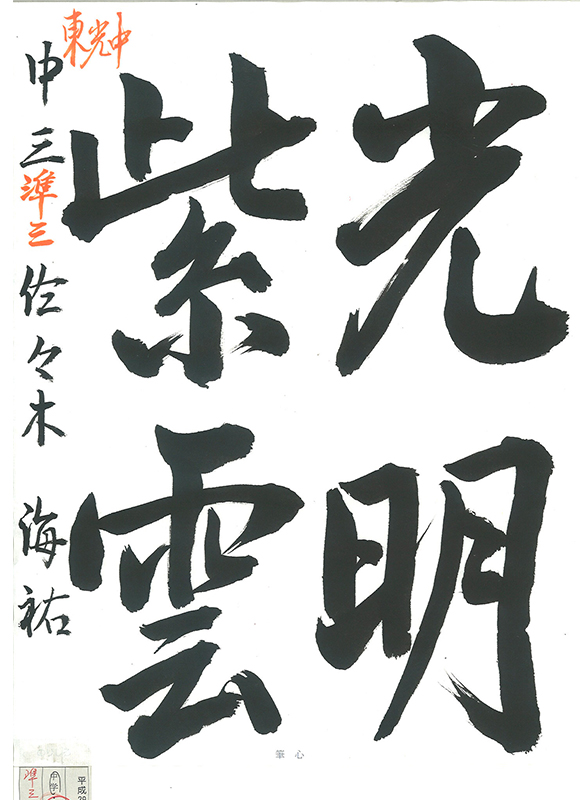 光明
紫雲
東光中
中三
準三
佐々木 海祐
心筆
準三
中学
平成28